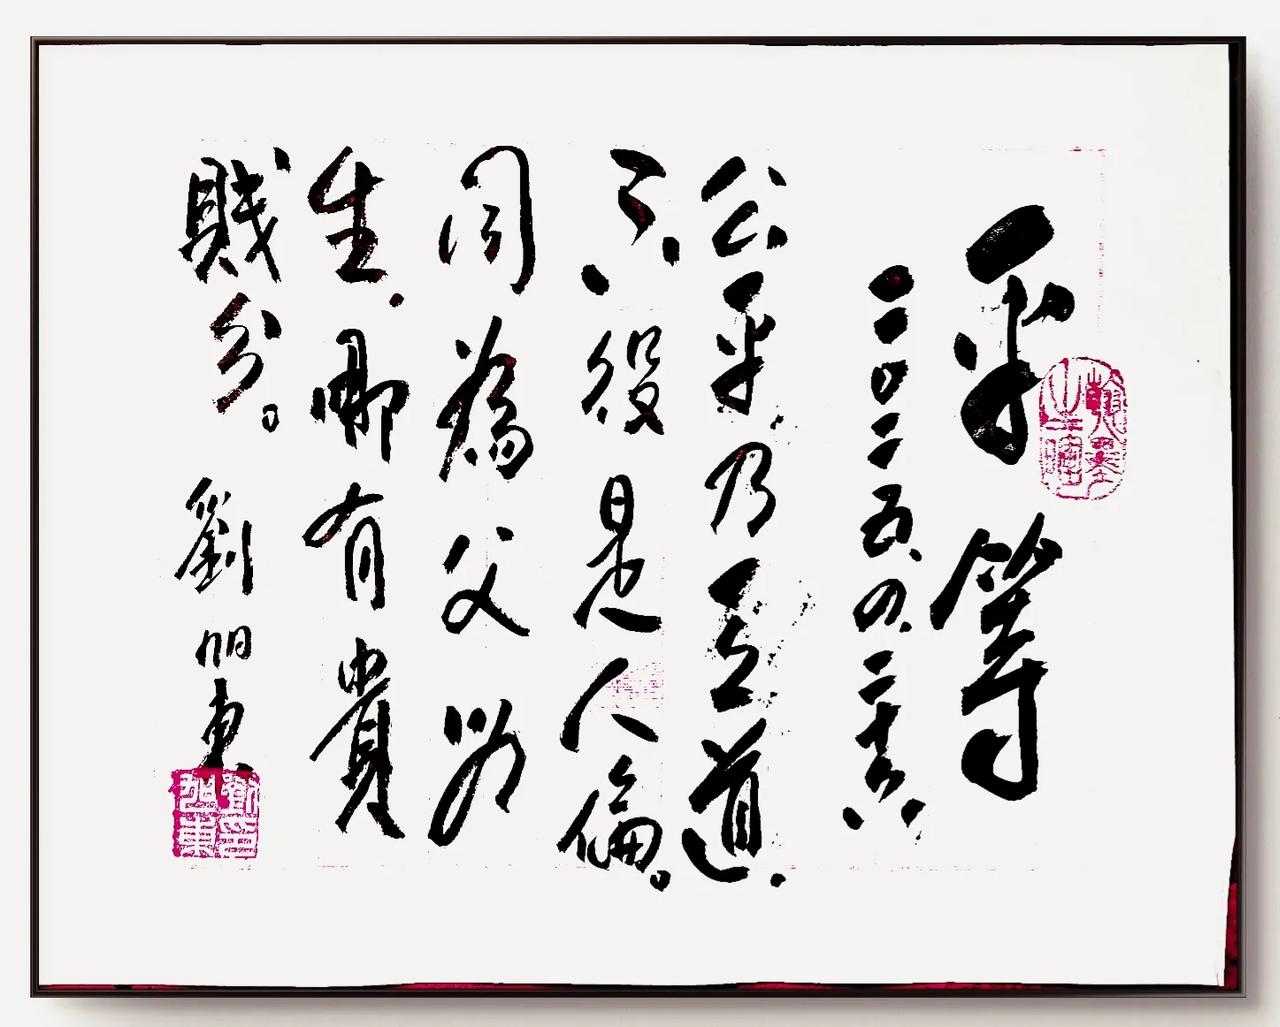 平等
二〇二五、四、二十六
公平乃道,
不役是人倫。
同為父母
生,哪有貴
賤分。
劉旭東
劉印旭東